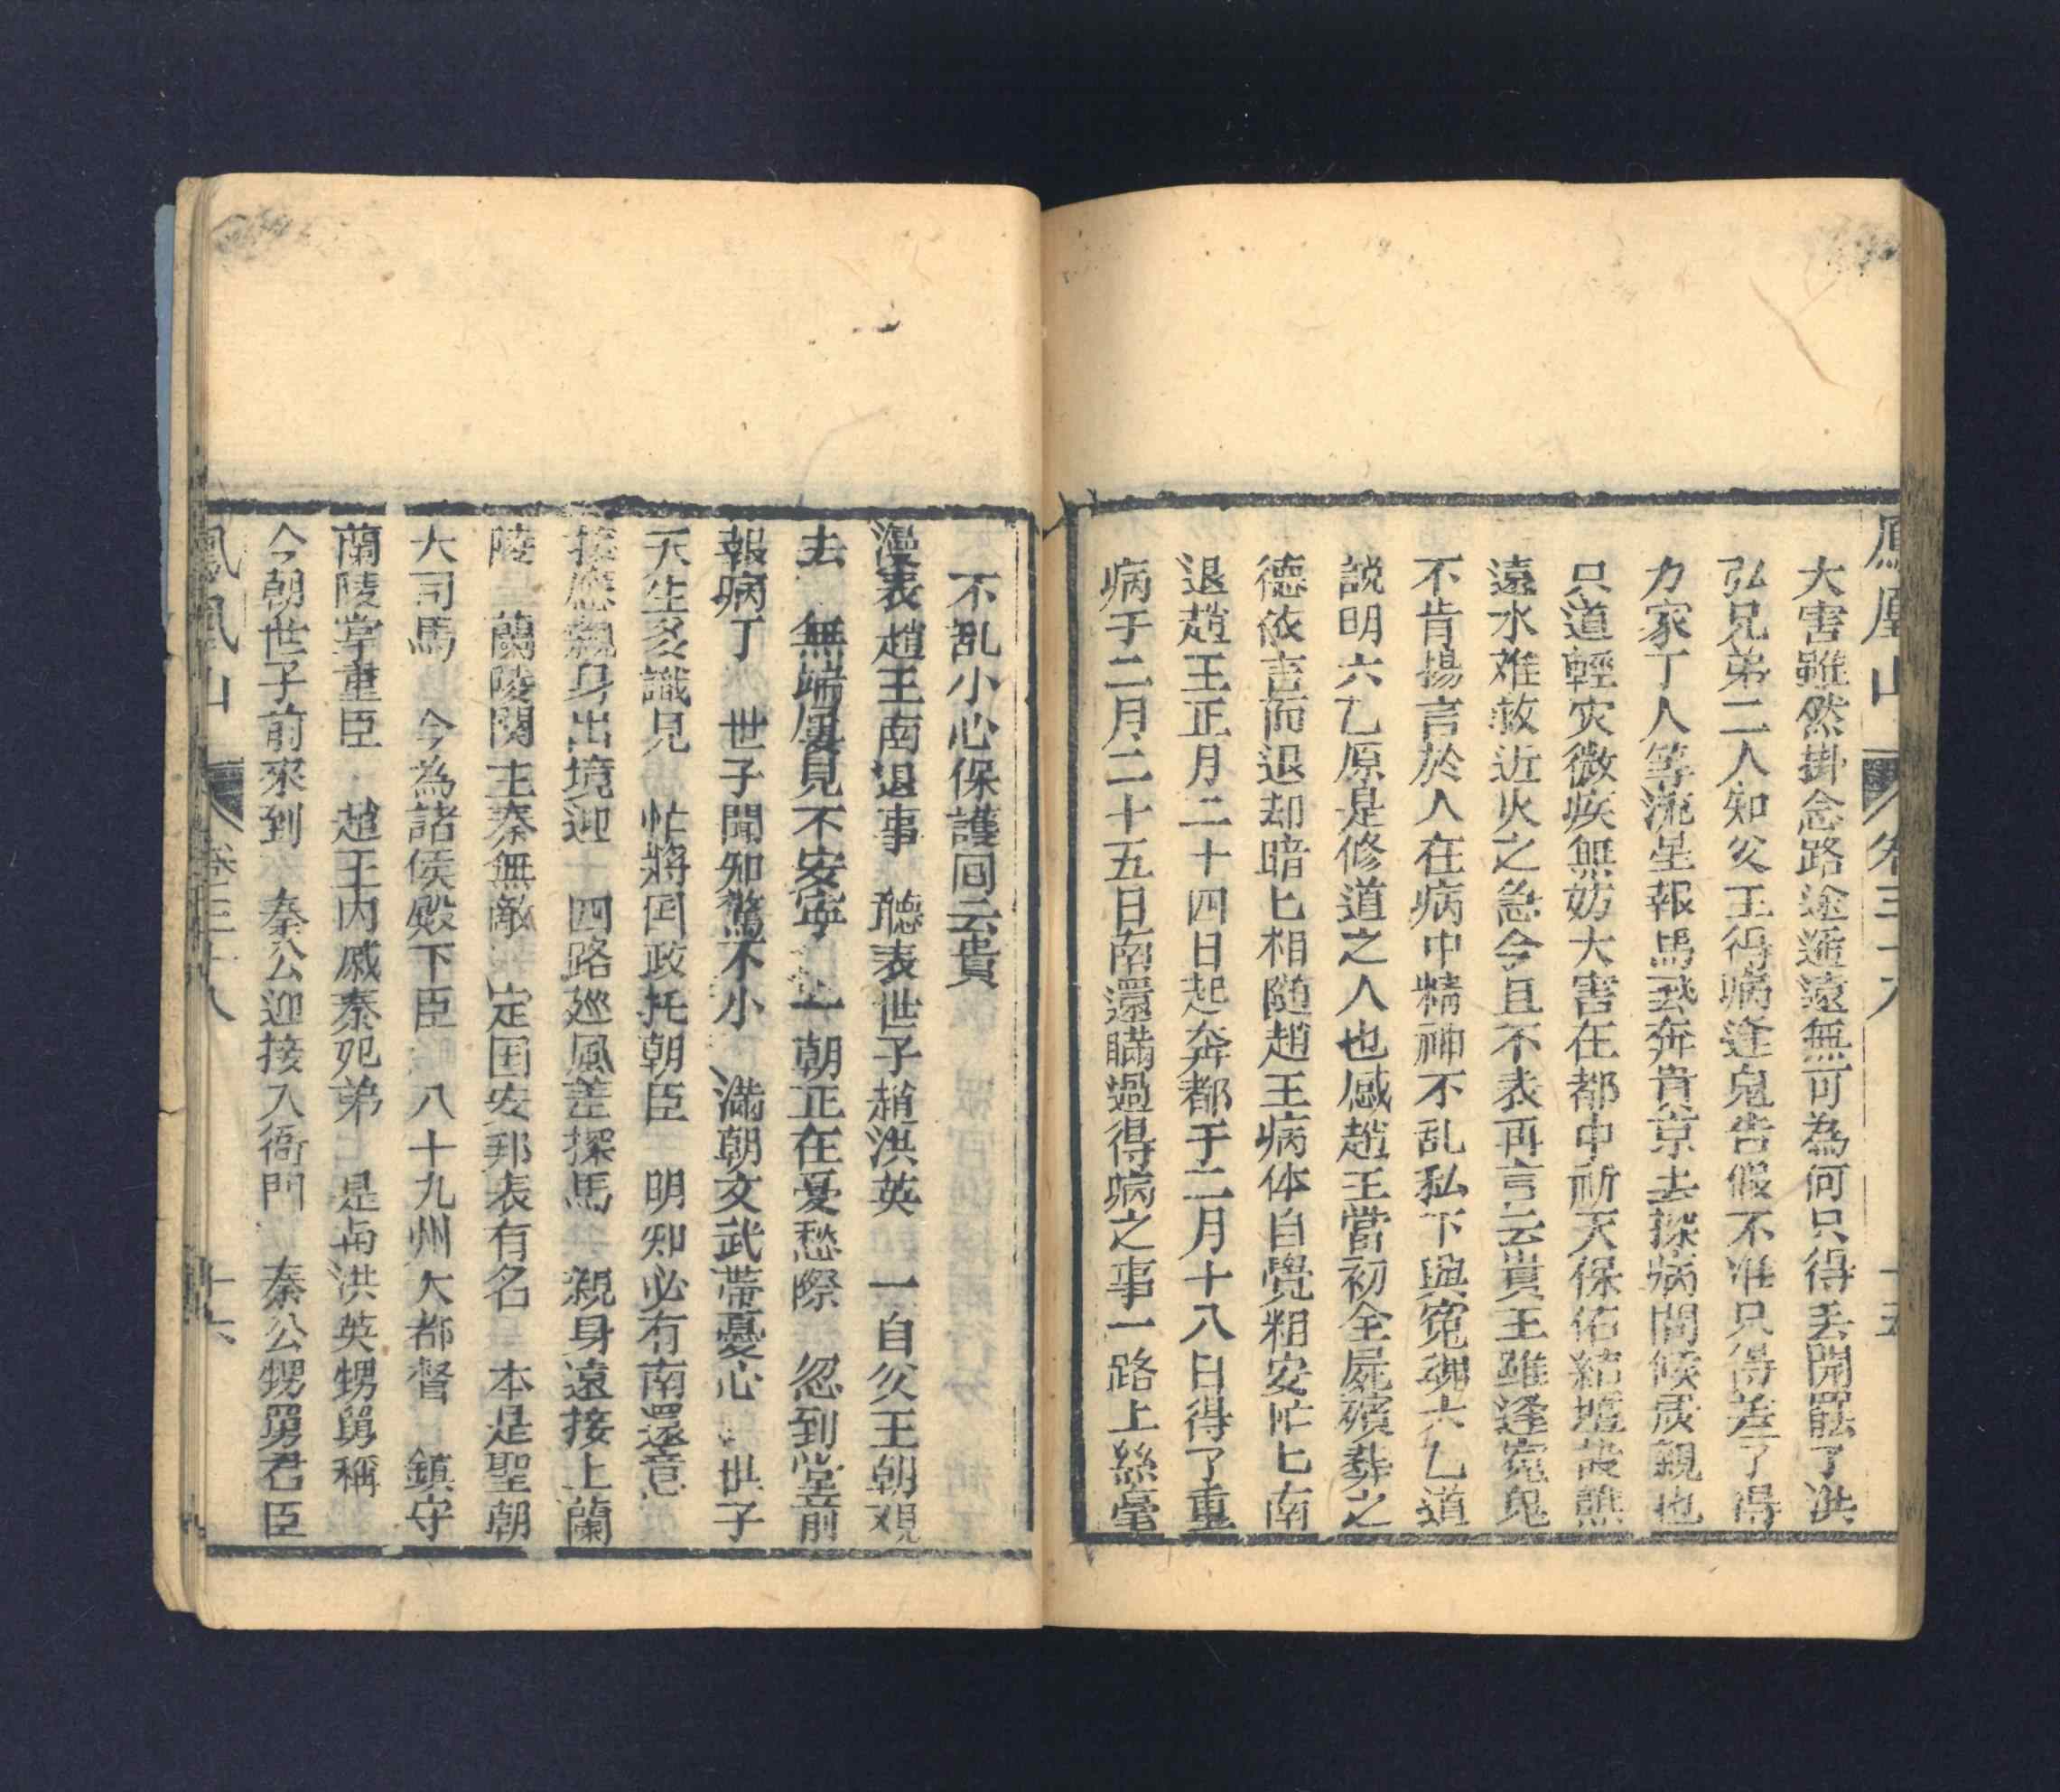 鳳凰山 卷三十八 十五
大害雖然掛念路途遙遠無可為何只得丟開罷了洪
弘兄弟二人知父王得病逢鬼告假不准只得差了得
力家丁人等流星報馬飛奔貴京去探病問候晨親也
只道輕灾微疾無妨大害在都中祈天保佑結壇設醮
遠水难救近火之急今且不表再言云貴王雖逢冤鬼
不肯揚言於人在病中精神不乱私下與冤魂六乙道
說明六乙原是修道之人也感趙王當初全屍殯葬之
德依言而退却暗匕相随趙王病体自覺粗安忙匕南
退趙王正月二十四日起奔都于二月十八日得了重
病于二月二十五日南還瞞過得病之事一路上絲毫
不乱小心保護回云貴
漫表趙王南退事 聽表世子趙洪英 一自父王朝覲
去 無端屢見不安寧 一朝正在憂愁際 忽到堂前
報病丁 世子聞知驚不小 滿朝文武帶憂心 世子
天生多識見 忙將国政托朝臣 明知必有南還意
接應親身出境迎 四路廵風差探馬 親身遠接上蘭
陵 蘭陵関主秦無敵 定国安邦表有名 本是聖朝
大司馬 今為諸侯殿下臣 八十九州大都督 鎮守
蘭陵掌重臣 趙王内戚秦妃弟 是与洪英甥舅稱
今朝世子前來到 秦公迎接入衙門 秦公甥舅君臣
鳳凰山 卷三十八 十六